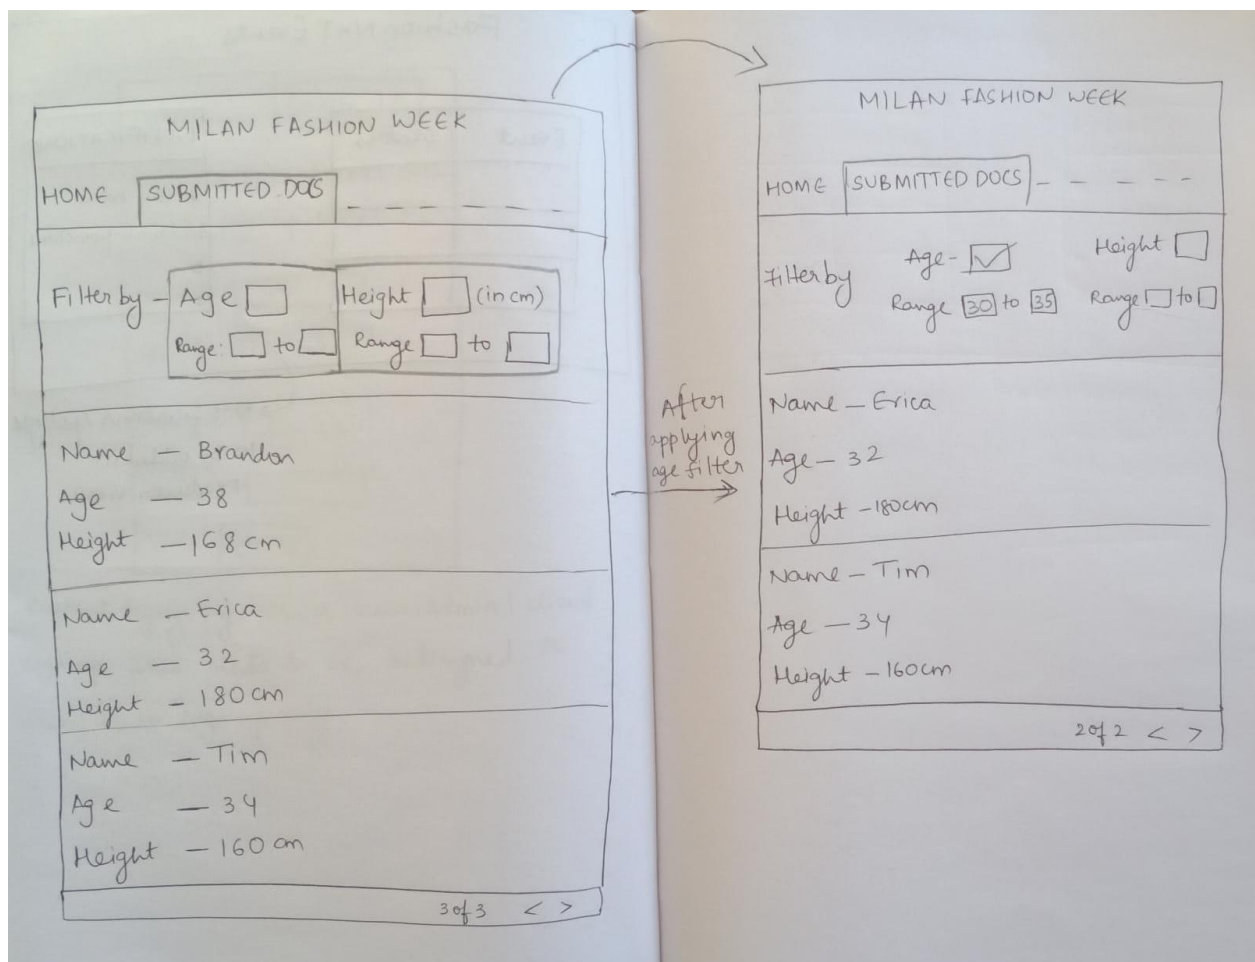 MILAN FASHION WEEK
HOME SUBMITTED DOCS
Filter by - Age Height (in cm)
Range: to Range to
Name - Brandon
Age - 38
Height - 168 cm
Name - Erica
Age - 32
Height - 180 cm
Name - Tim
Age - 34
Height - 160 cm
3 of 3 < >
After
applying
age filter
MILAN FASHION WEEK
HOME SUBMITTED DOCS
Filter by Age - Height
Range 30 to 35 Range to
Name - Erica
Age - 32
Height - 180cm
Name - Tim
Age - 34
Height - 160cm
2 of 2 < >